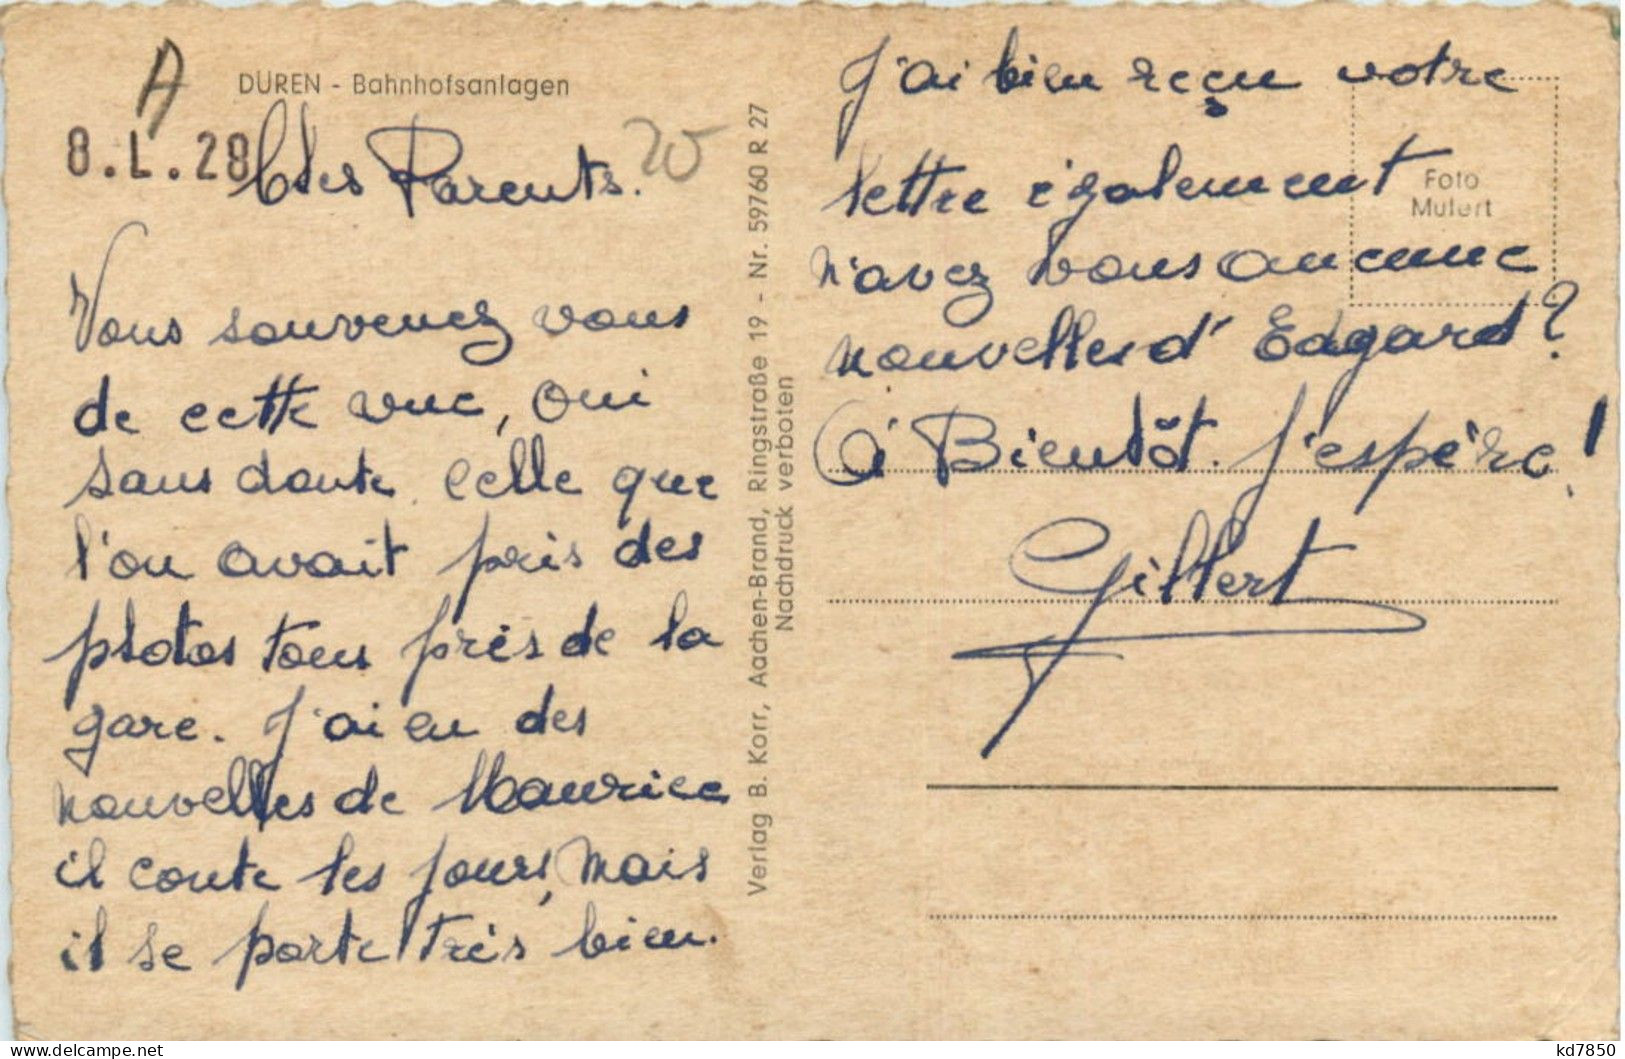 A
DÜREN - Bahnhofsanlagen
8.L.28
20
Chers Parents.
Vous souvenez vous
de cette vue, oui
sans doute celle que
l'on avait pris des
photos tous près de la
gare. J'ai eu des
nouvelles de Maurice
il conte les jours, mais
il se porte très bien.
Verlag B. Korr, Aachen-Brand, Ringstraße 19 - Nr. 59760 R 27
Nachdruck verboten
Foto
Mulert
J'ai bien reçu votre
lettre également
n'avez vous aucune
nouvelles d'Edgard?
à Bientôt. j'espère!
Gilbert
kd7850